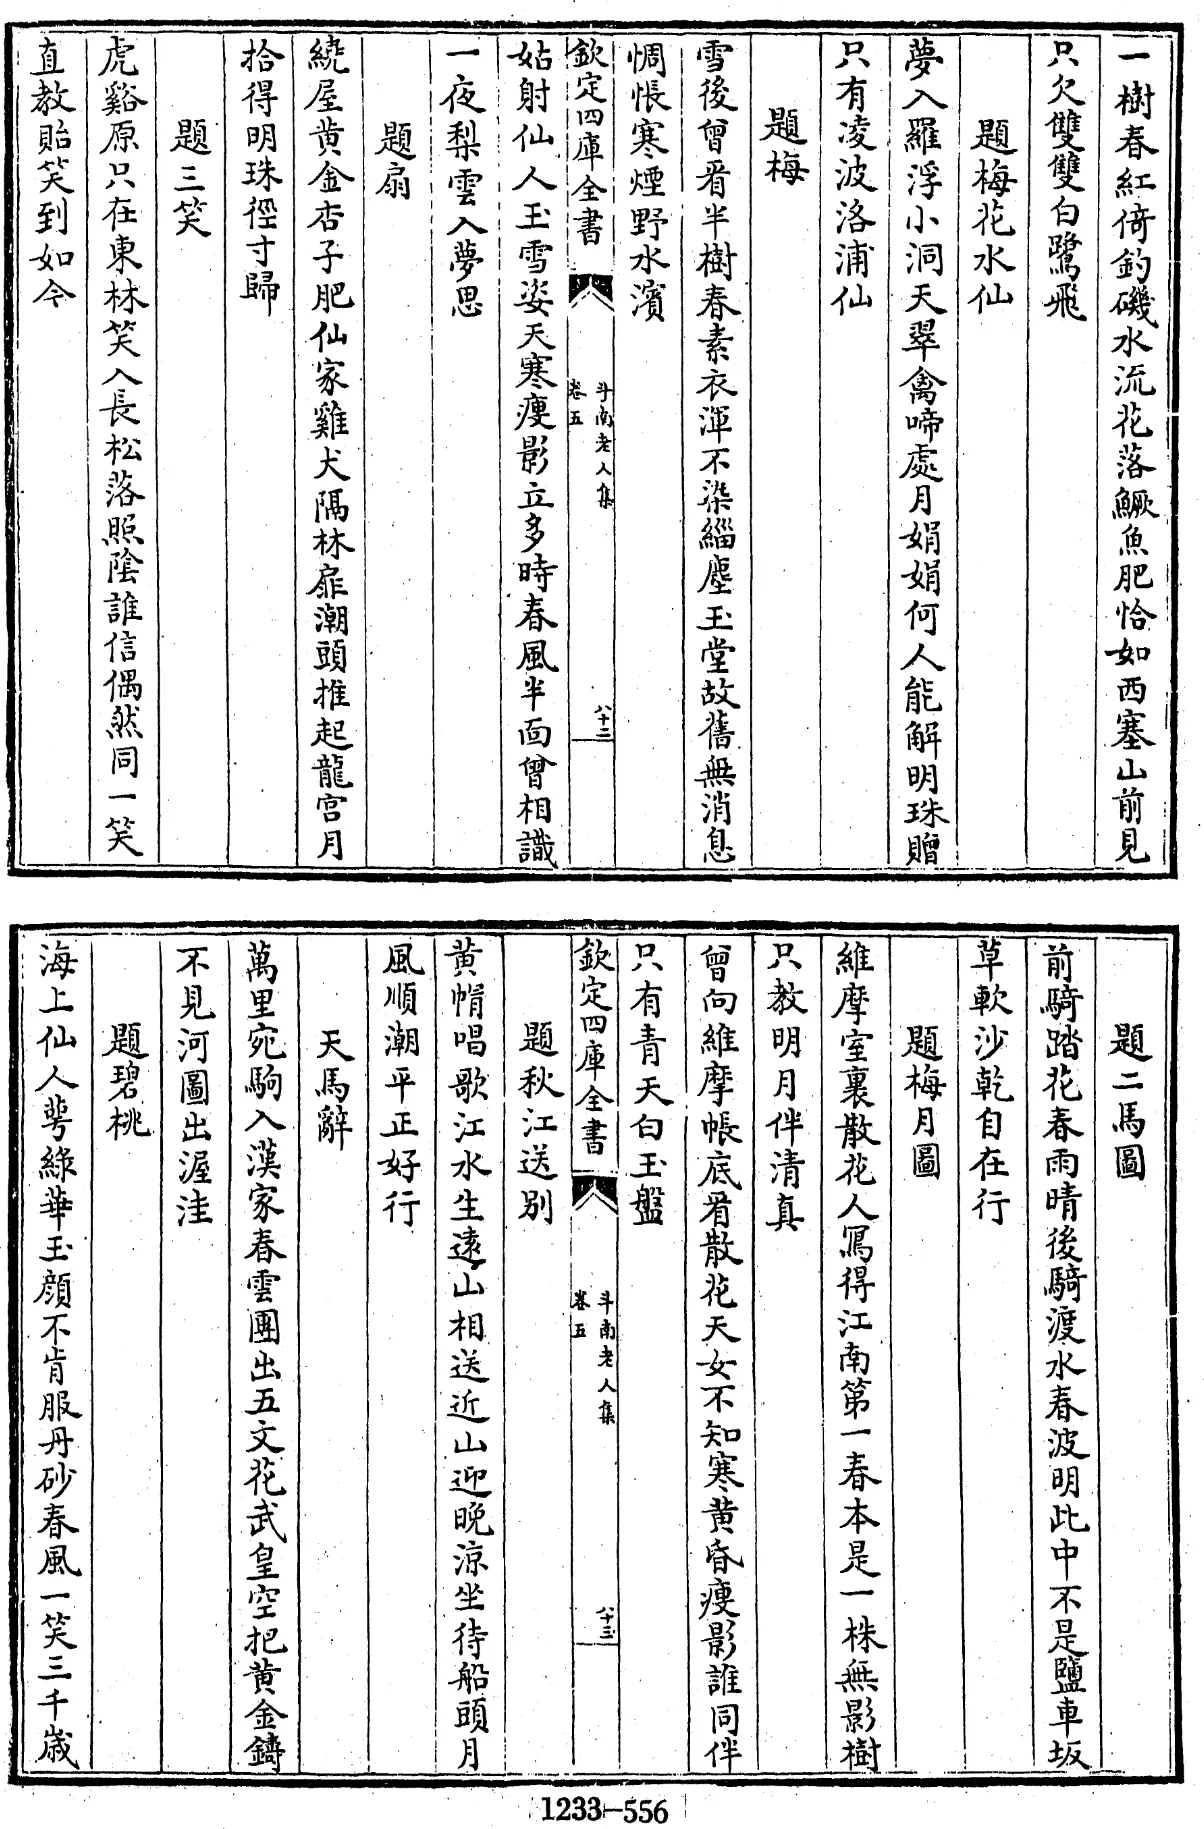 一樹春紅倚釣磯水流花落鱖魚肥恰如西塞山前見
只欠雙雙白鷺飛
題梅花水仙
夢入羅浮小洞天翠禽啼處月娟娟何人能解明珠贈
只有凌波洛浦仙
題梅
雪後曾看半樹春素衣渾不染緇塵玉堂故舊無消息
惆悵寒煙野水濱
欽定四庫全書
斗南老人集
卷五
八十二
姑射仙人玉雪姿天寒瘦影立多時春風半面曾相識
一夜梨雲入夢思
題扇
繞屋黄金杏子肥仙家雞犬隔林扉潮頭推起龍宫月
拾得明珠徑寸歸
題三笑
虎谿原只在東林笑入長松落照陰誰信偶然同一笑
直教貽笑到如今
題二馬圖
前騎踏花春雨晴後騎渡水春波明此中不是鹽車坂
草軟沙乾自在行
題梅月圖
維摩室裏散花人寫得江南第一春本是一株無影樹
只教明月伴清真
曾向維摩帳底看散花天女不知寒黄昏瘦影誰同伴
只有青天白玉盤
欽定四庫全書
斗南老人集
卷五
八十三
題秋江送別
黄帽唱歌江水生遠山相送近山迎晚涼坐待船頭月
風順潮平正好行
天馬辭
萬里宛駒入漢家春雲團出五文花武皇空把黄金鑄
不見河圖出渥洼
題碧桃
海上仙人萼綠華玉顔不肯服丹砂春風一笑三千歲
1233-556